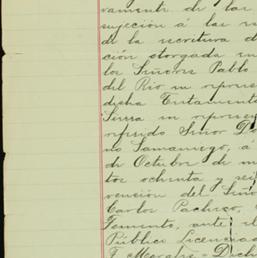 vamente de las
sujeción á las
de la escritura d
ción otorgada en
los Señores Pablo
del Rio en repres
dicha Testament
Serra en represe
referido Señor D
no Samaniego, á
de Octubre de m
tos ochenta y sei
vención del Seño
Carlos Pacheco,
Fomento, ante el
Público Licencia
F. Morales = Dich